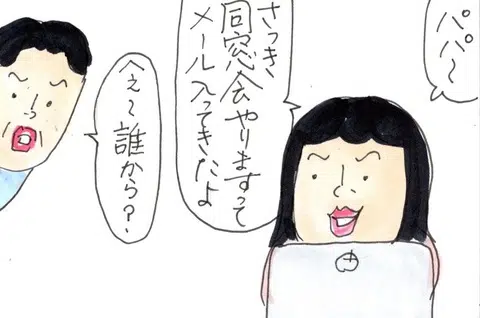 パパ〜
さっき
同窓会やりますって
メール入ってきたよ
へぇ〜誰から?